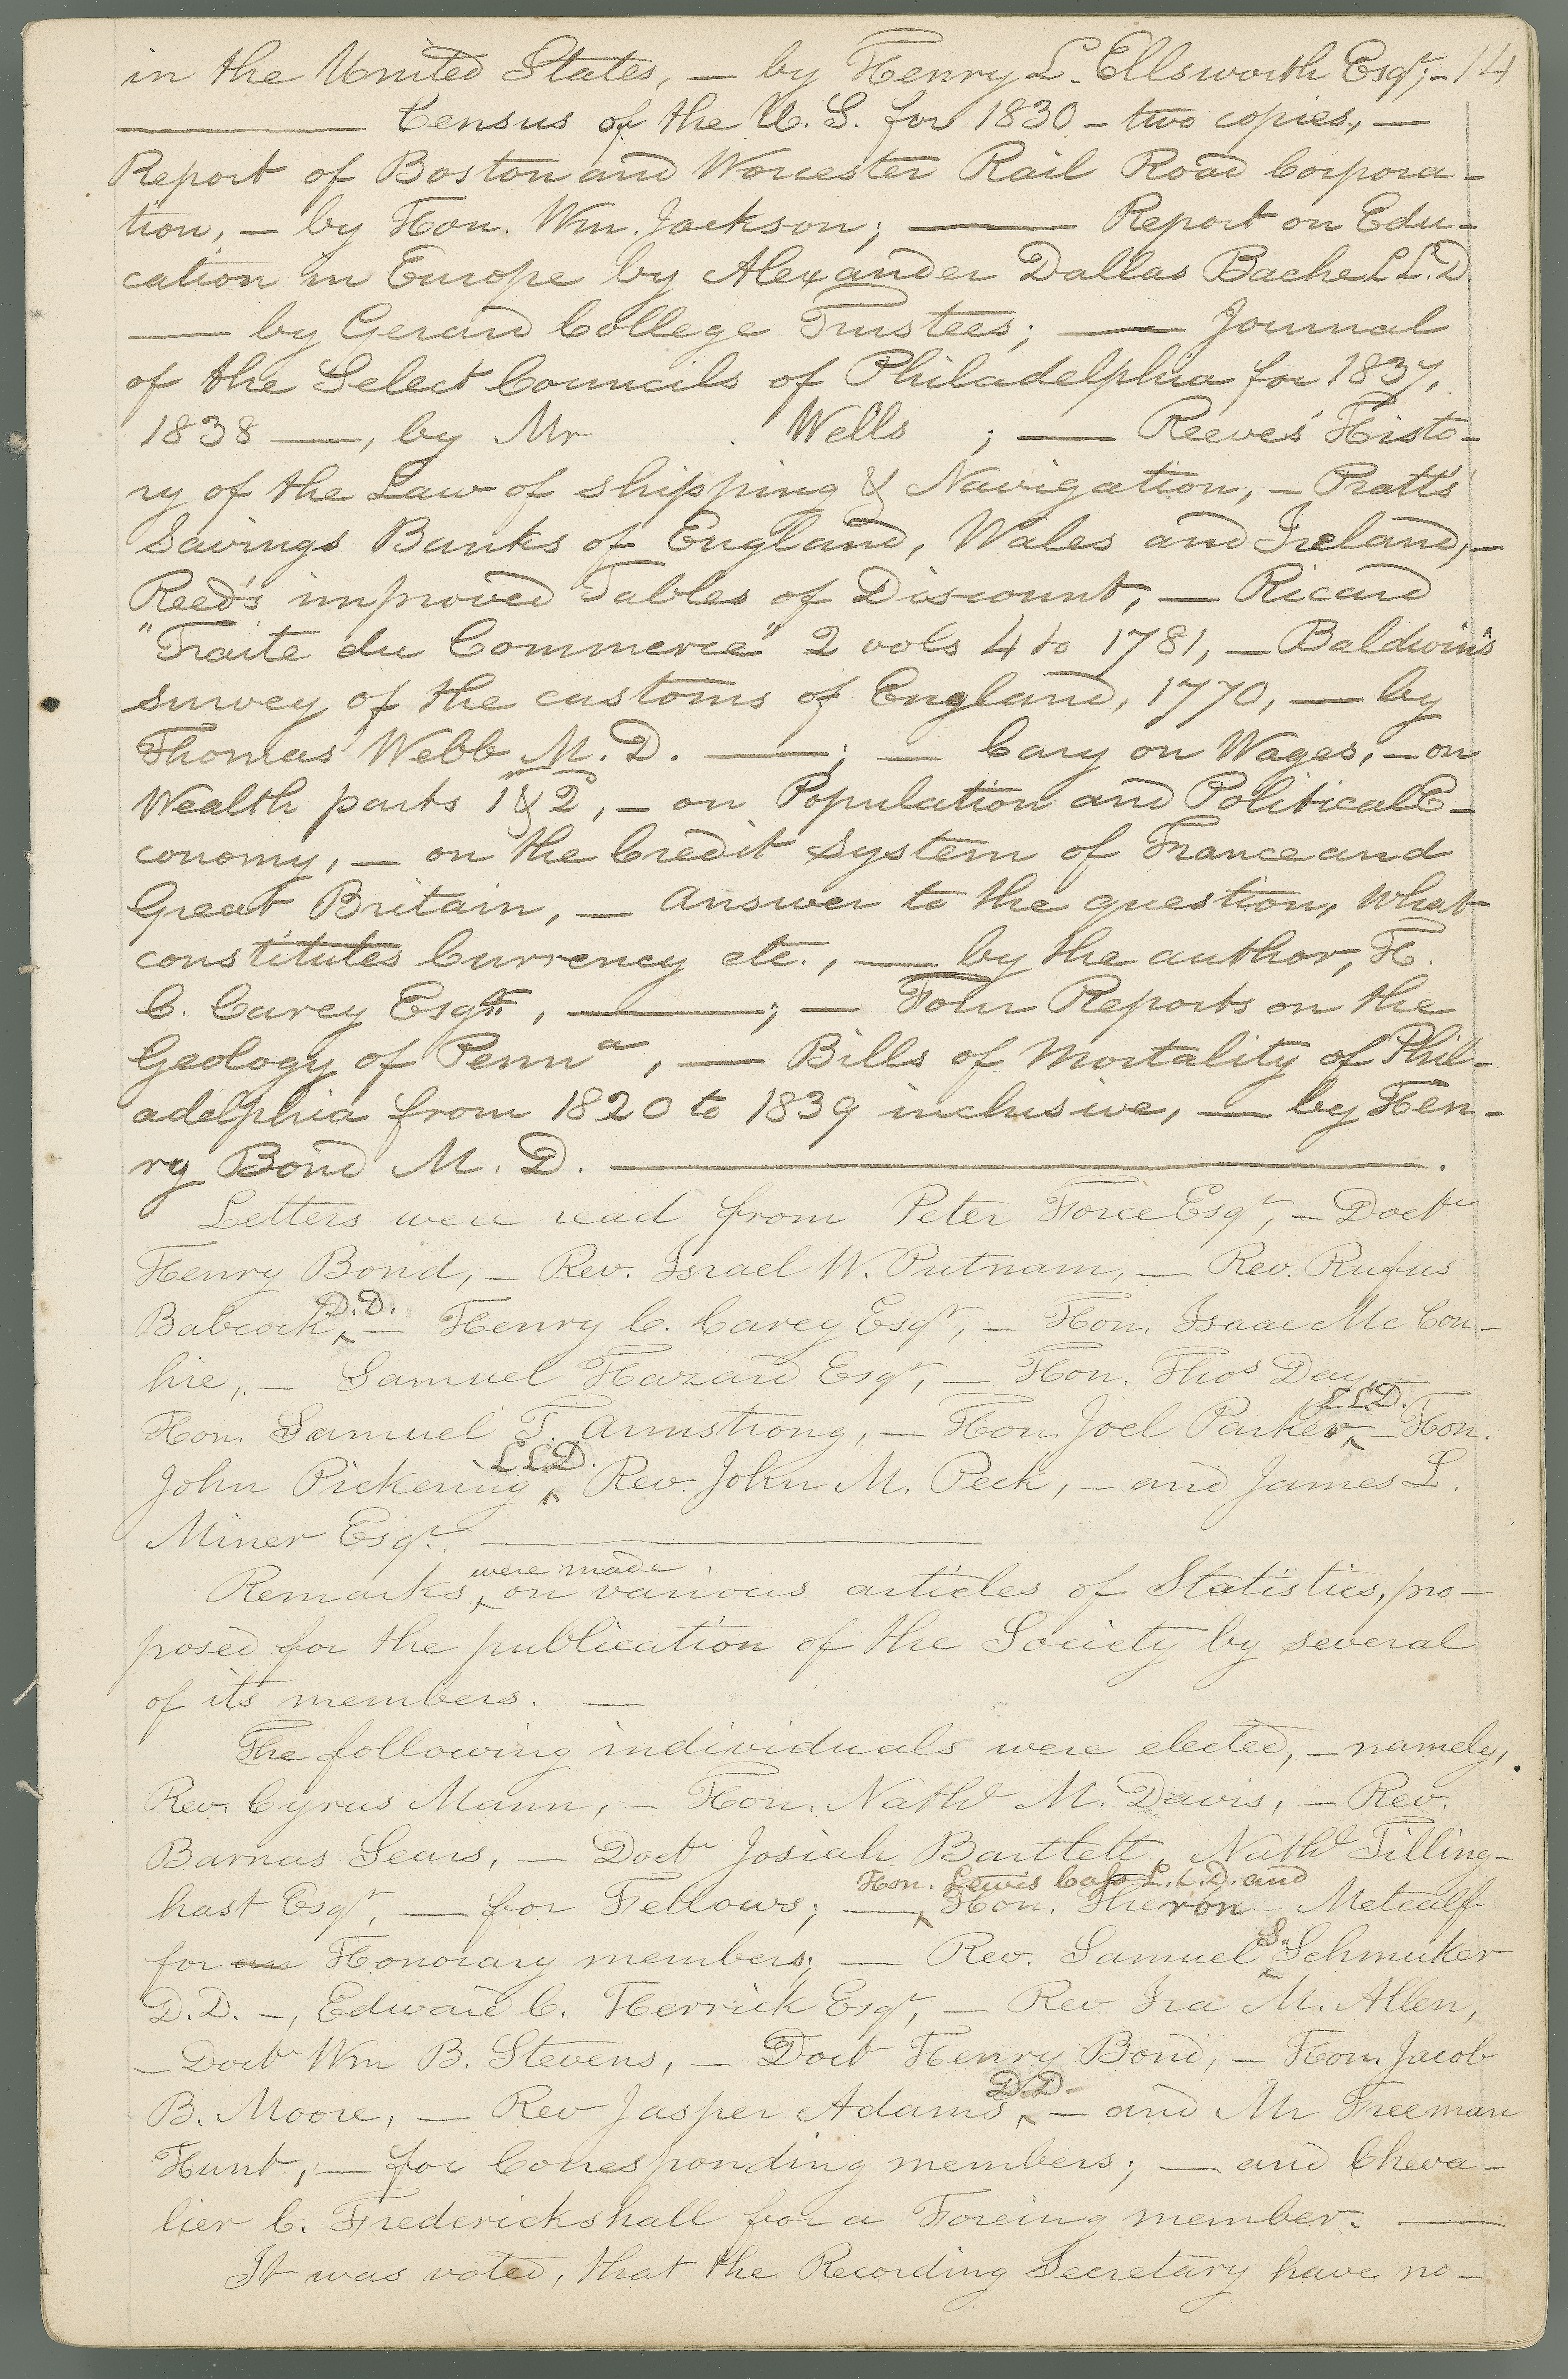 in the United States, — by Henry L. Ellsworth Esqr; — 14
——— Census of the U.S. for 1830 — two copies, —
Report of Boston and Worcester Rail Road Corpora-
tion, — by Hon. Wm. Jackson; ——— Report on Edu-
cation in Europe by Alexander Dallas Bache L L.D.
—— by Gerard College Trustees; —— Journal
of the Select Councils of Philadelphia for 1837,
1838 ——, by Mr . Wells ; —— Reeves' Histo-
ry of the Law of shipping & Navigation, — Pratt's
Savings Banks of England, Wales and Ireland, —
Reed's improved Tables of Discount, — Ricard
"Traite du Commerce" 2 vols 4 to 1781, — Baldwin's
survey of the customs of England, 1770, — by
Thomas Webb M.D. ———; — Cary on Wages, — on
Wealth parts 1 & 2, — on Population and Political E-
conomy, — on the Credit system of France and
Great Britain, — Answer to the question, What
constitutes Currency etc., — by the author, H.
C. Carey Esqr, ———; — Four Reports on the
Geology of Penna, — Bills of Mortality of Phil-
adelphia from 1820 to 1839 inclusive, — by Hen-
ry Bond M. D. ———.
Letters were read from Peter Force Esqr, — Doctr
Henry Bond, — Rev. Israel W. Putnam, — Rev. Rufus
Babcock, D.D. — Henry C. Carey Esqr, — Hon. Isaac Mc Con-
hie, — Samuel Hazard Esqr, — Hon. Thos Day,
Hon. Samuel T. Armstrong, — Hon. Joel Parker, LL.D. — Hon.
John Pickering L.L.D. Rev. John M. Peck, — and James L.
Miner Esqr. ———
Remarks, were made on various articles of Statistics, pro-
posed for the publication of the Society by several
of its members. —
The following individuals were elected, — namely,
Rev. Cyrus Mann, — Hon. Nathl M. Davis, — Rev.
Barnas Sears, — Doctr Josiah Bartlett, Nathl Tilling-
hast Esqr, — for Fellows; —, Hon. Lewis Cass L.L.D. and Hon. Theron Metcalf
for an Honorary members; — Rev. Samuel S. Schmuker
D.D. —, Edward C. Herrick Esqr, — Rev Ira M. Allen,
— Doctr Wm B. Stevens, — Doct Henry Bond, — Hon. Jacob
B. Moore, — Rev Jasper Adams, D.D. — and Mr Freeman
Hunt, — for Corresponding members; — and Cheva-
lier C. Frederickshall for a Foreing member. ——
It was voted, that the Recording Secretary have no-